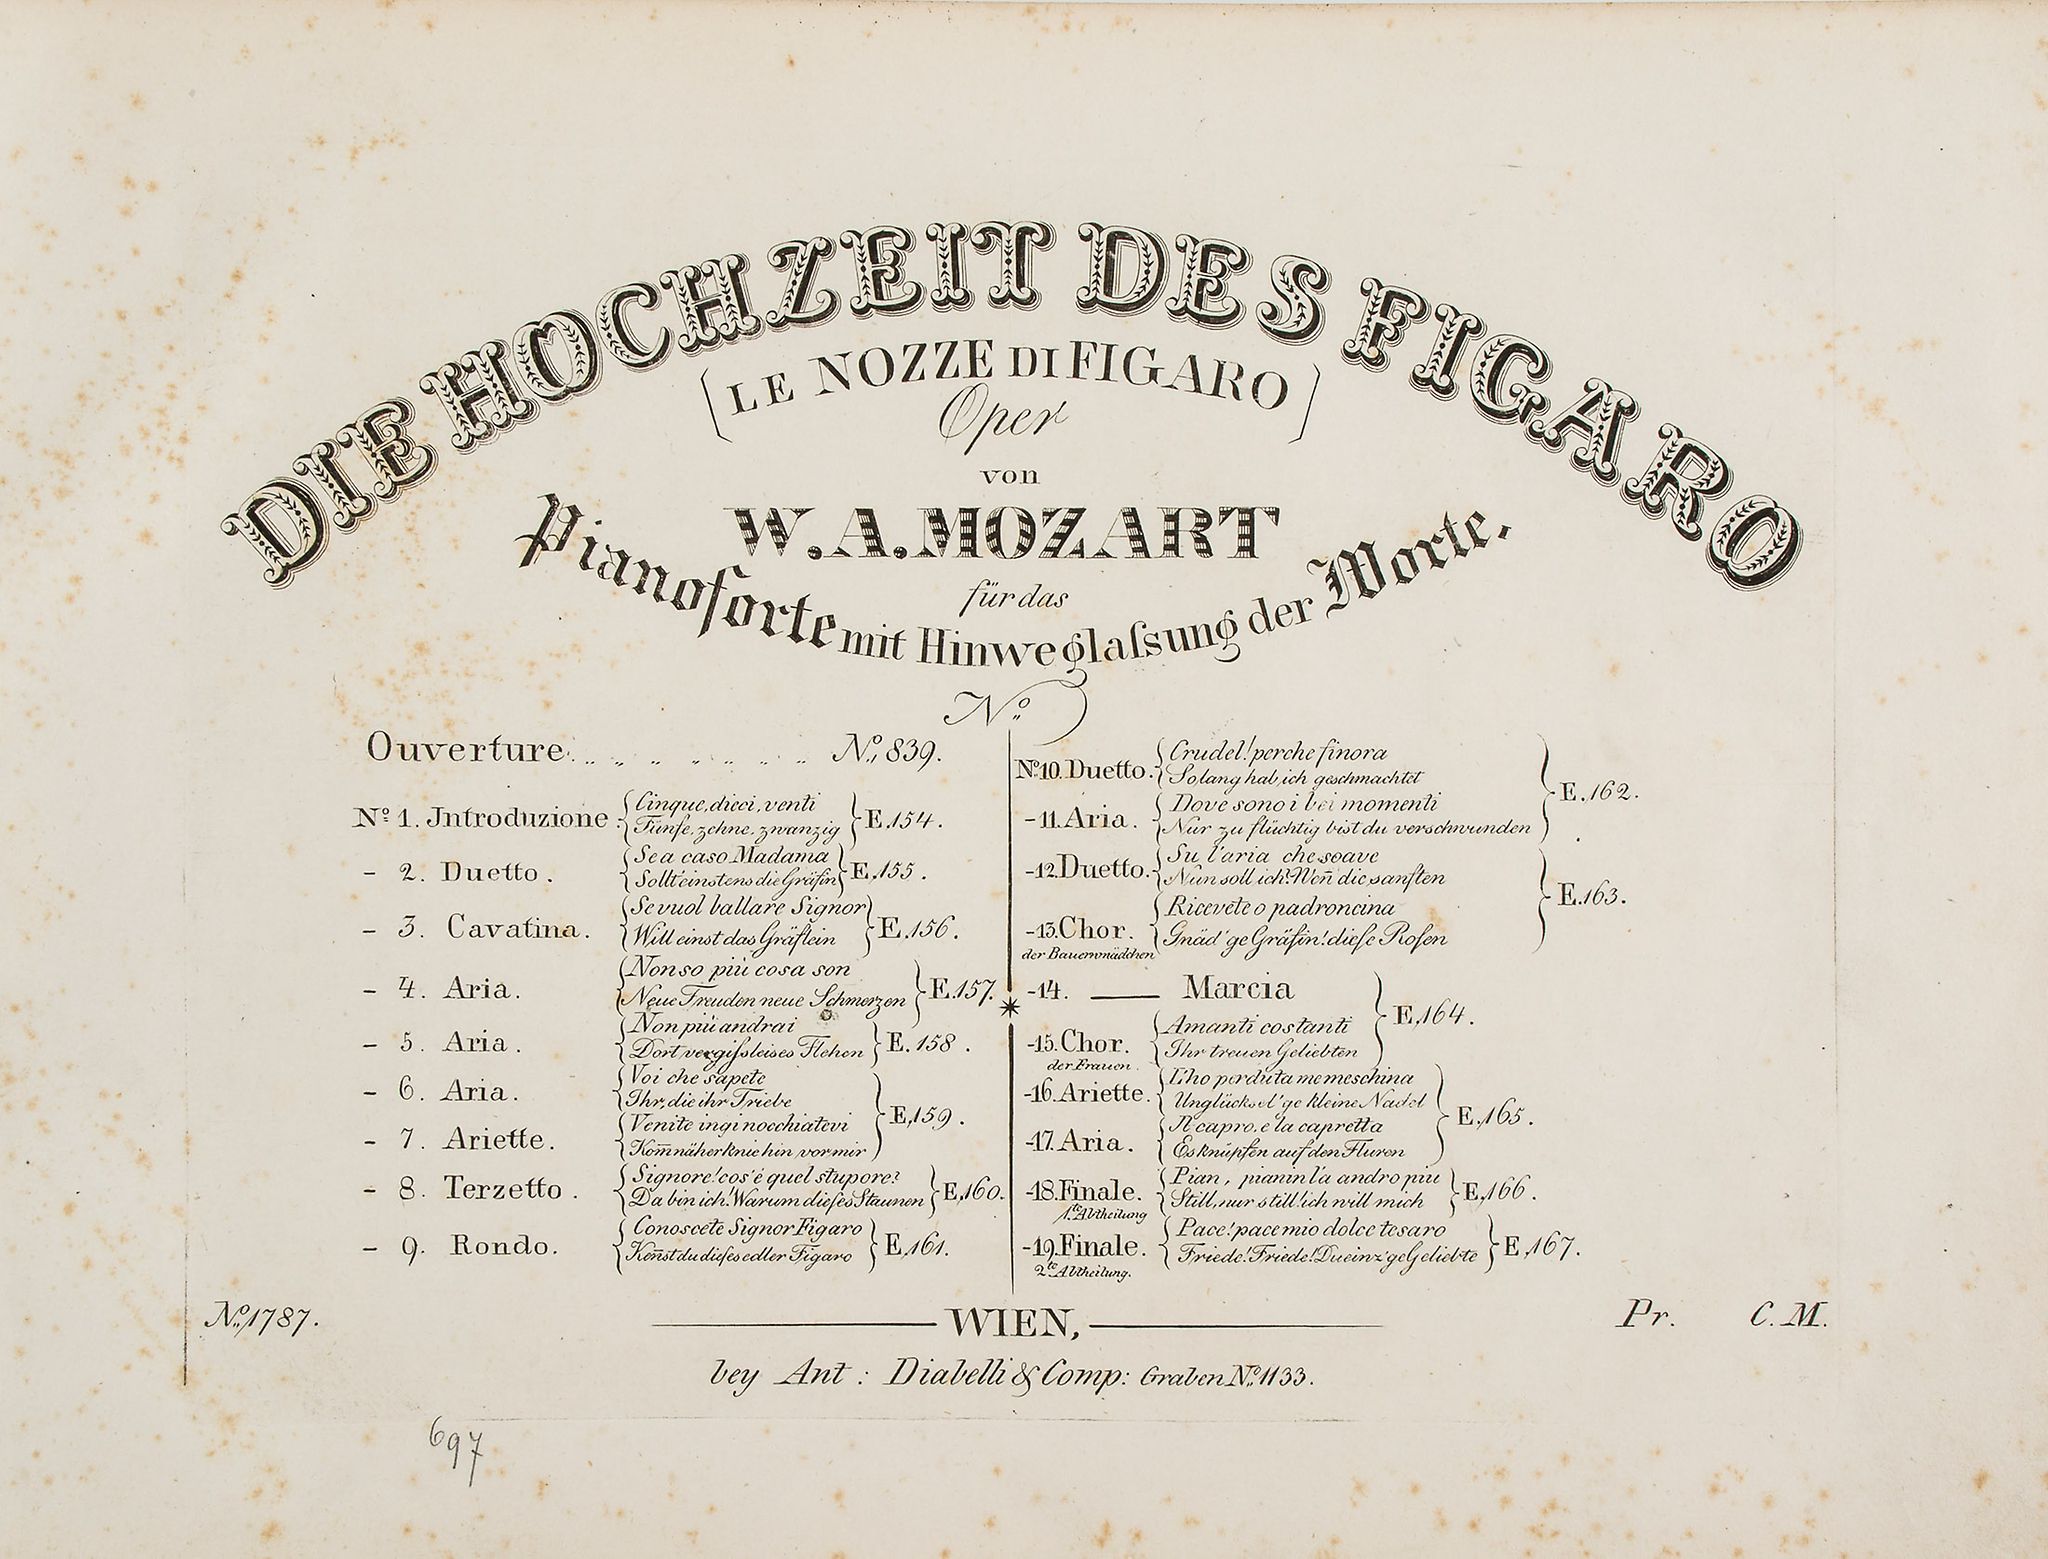 DIE HOCHZEIT DES FIGARO
(LE NOZZE DI FIGARO)
Oper
von
W. A. MOZART
für das
Pianoforte mit Hinweglaſsung der Worte.
No.
Ouverture . . . . . . . No. 839.
No. 1. Introduzione. Cinque, dieci, venti
Fünfe, zehne, zwanzig E. 154.
- 2. Duetto. Se a caso Madama
Sollt' einstens die Gräfin E. 155.
- 3. Cavatina. Se vuol ballare Signor
Will einst das Gräflein E. 156.
- 4. Aria. Non so più cosa son
Neue Freuden neue Schmerzen E. 157.
- 5. Aria. Non più andrai
Dort vergiſs leises Flehen E. 158.
- 6. Aria. Voi che sapete
Ihr, die ihr Triebe
- 7. Ariette. Venite inginocchiatevi
Kom̄ näher knie hin vor mir E. 159.
- 8. Terzetto. Signore! cos' é quel stupore?
Da bin ich! Warum dieſes Staunen E. 160.
- 9. Rondo. Conoscete Signor Figaro
Ken̄st du dieſes edler Figaro E. 161.
No. 10. Duetto. Crudel! perche finora
So lang hab' ich geschmachtet
- 11. Aria. Dove sono i bei momenti
Nur zu flüchtig bist du verschwunden E. 162.
- 12. Duetto. Su l'aria che soave
Nun soll ich? Wen̄ die sanften
- 13. Chor. Ricevete o padroncina
der Bauernmädchen Gnäd'ge Gräfin! dieſe Roſen E. 163.
- 14. Marcia
- 15. Chor. Amanti costanti
der Frauen. Ihr treuen Geliebten E. 164.
- 16. Ariette. L'ho perduta me meschina
Unglücksel'ge kleine Nadel
- 17. Aria. Il capro, e la capretta
Es knüpfen auf den Fluren E. 165.
- 18. Finale. Pian, pianin l'a andro piu
1te Abtheilung Still, nur still! ich will mich E. 166.
- 19. Finale. Pace! pace mio dolce tesaro
2te Abtheilung. Friede! Friede! Du einz'ge Geliebte E. 167.
No. 1787. WIEN, Pr. C. M.
bey Ant: Diabelli & Comp: Graben No. 1133.
697